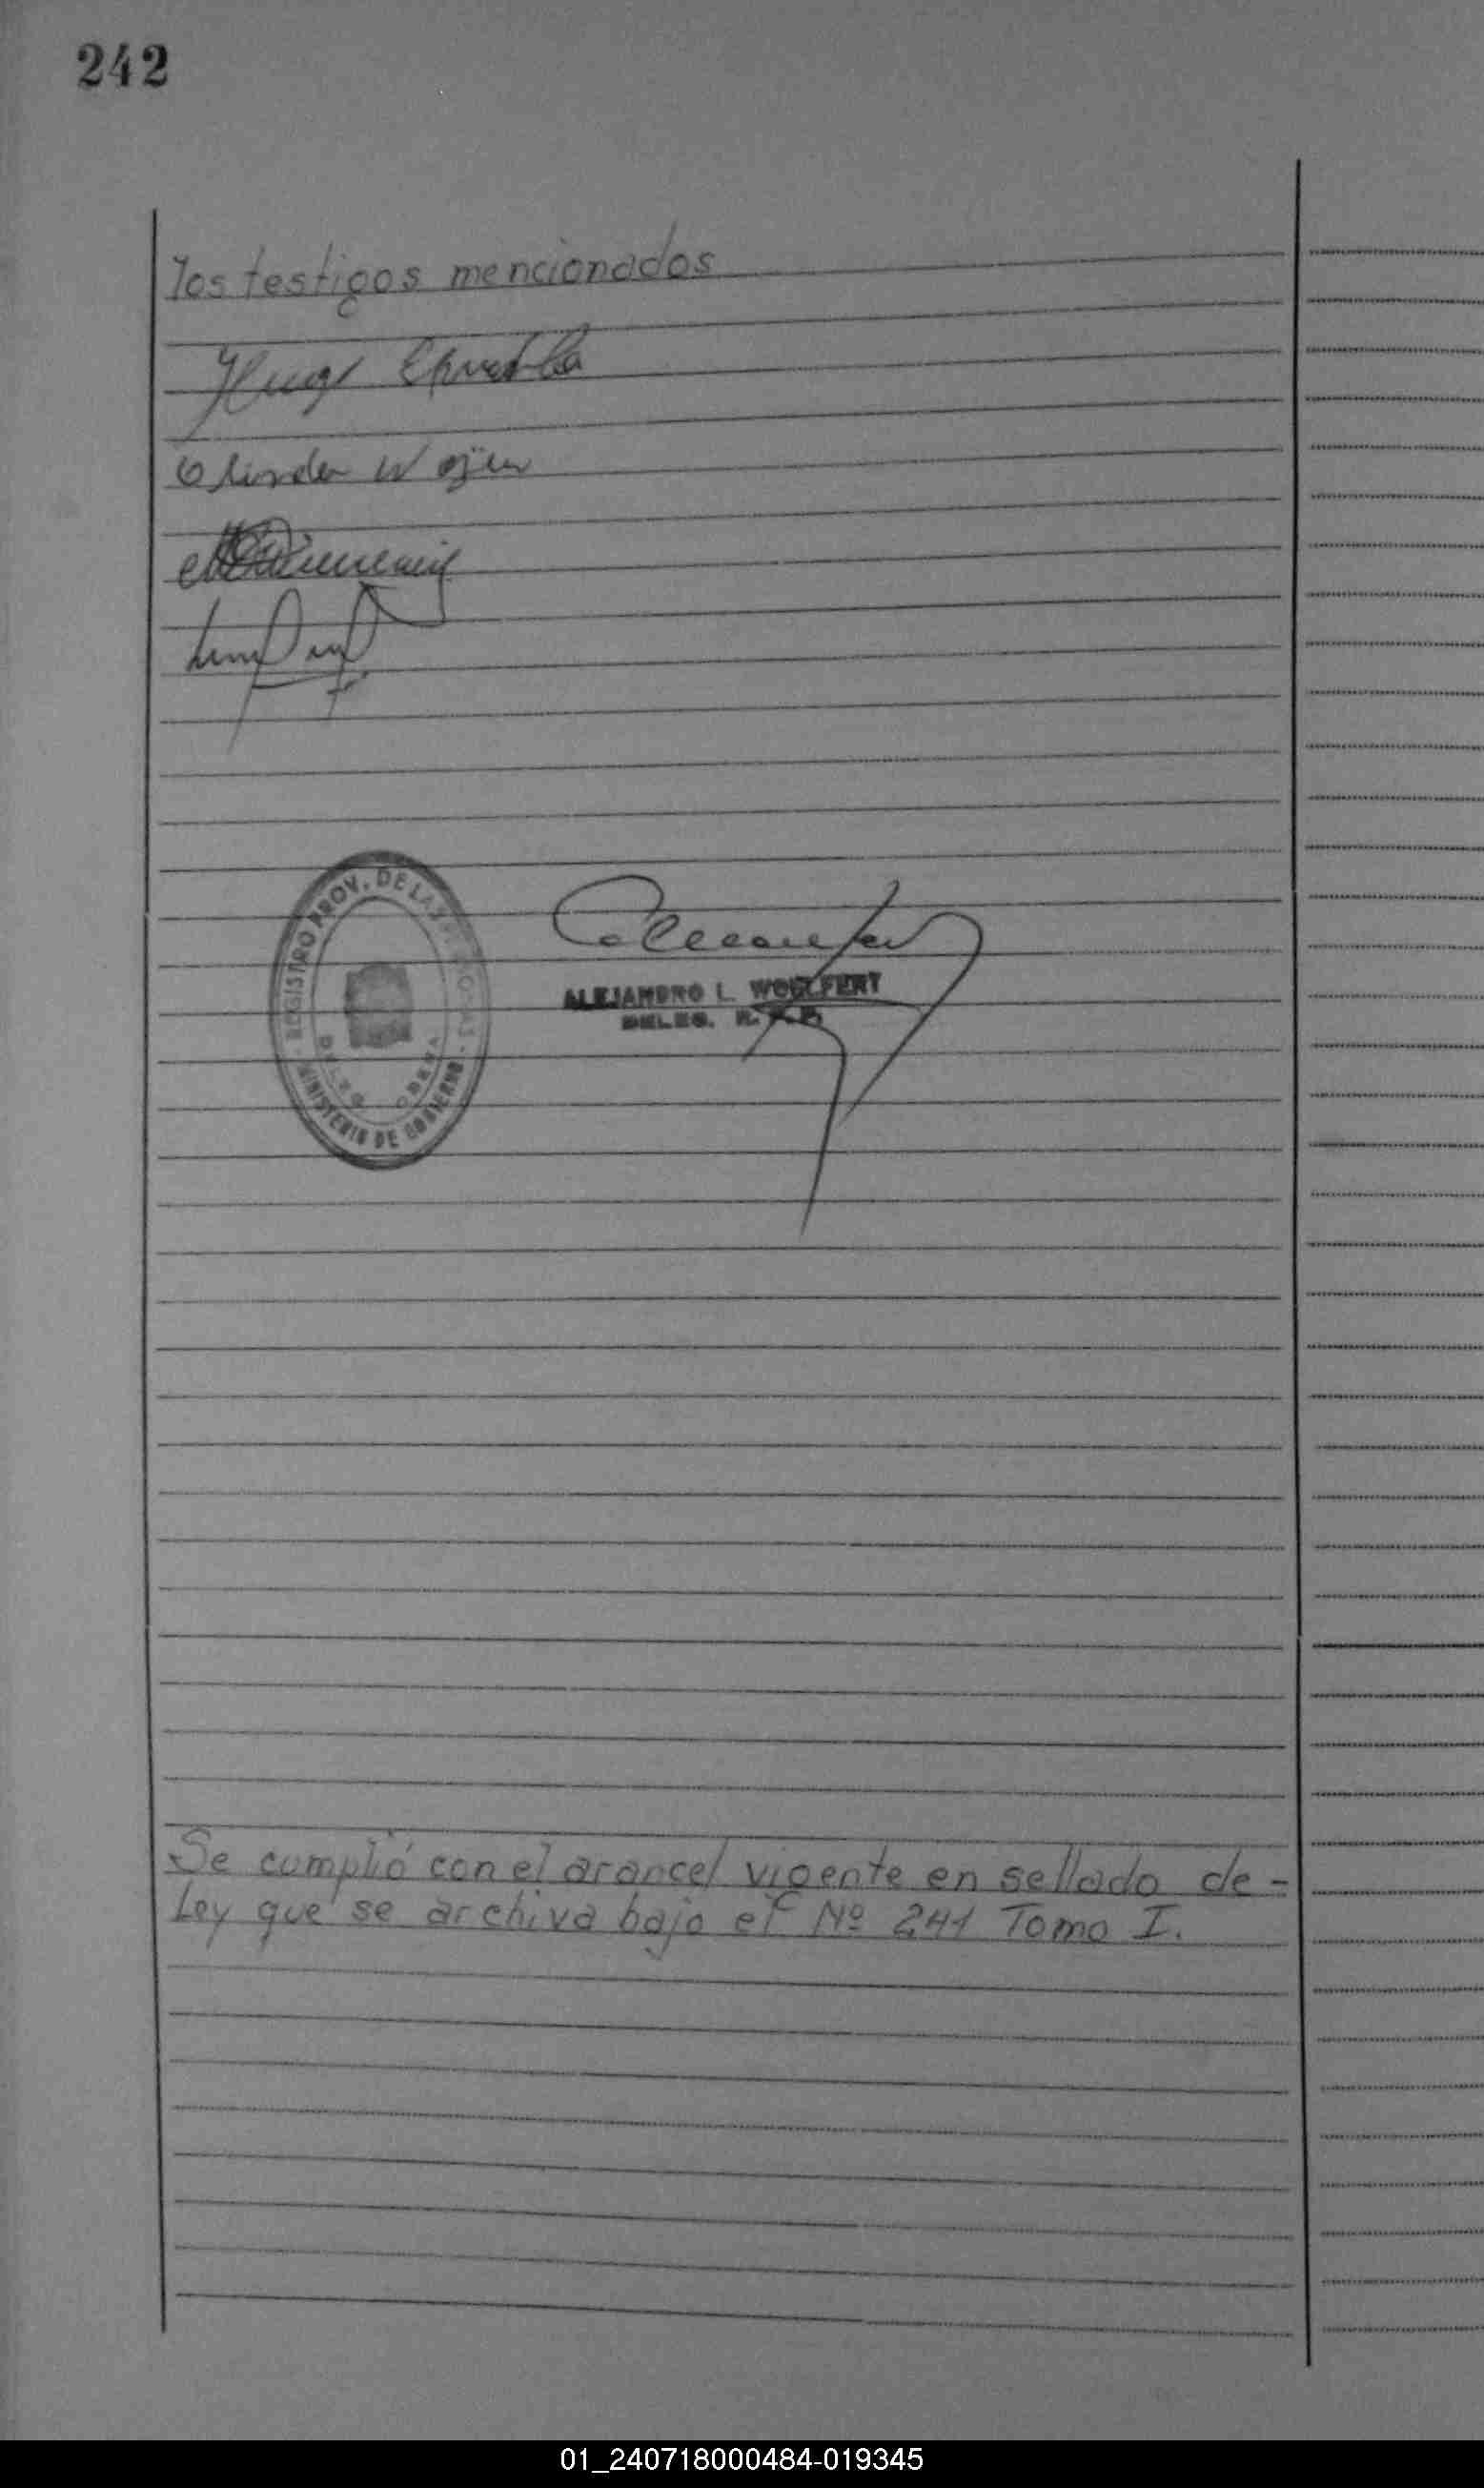 242
los testigos mencionados
Hugo
Olinda
REGISTRO PROV. DE LAS PERSONAS
MINISTERIO DE GOBIERNO
DELEG. OBERA
ALEJANDRO L. WOLLFERT
DELEG. R. P. P.
Se cumplió con el arancel vigente en sellado de -
Ley que se archiva bajo el Nº 241 Tomo I.
01_240718000484-019345